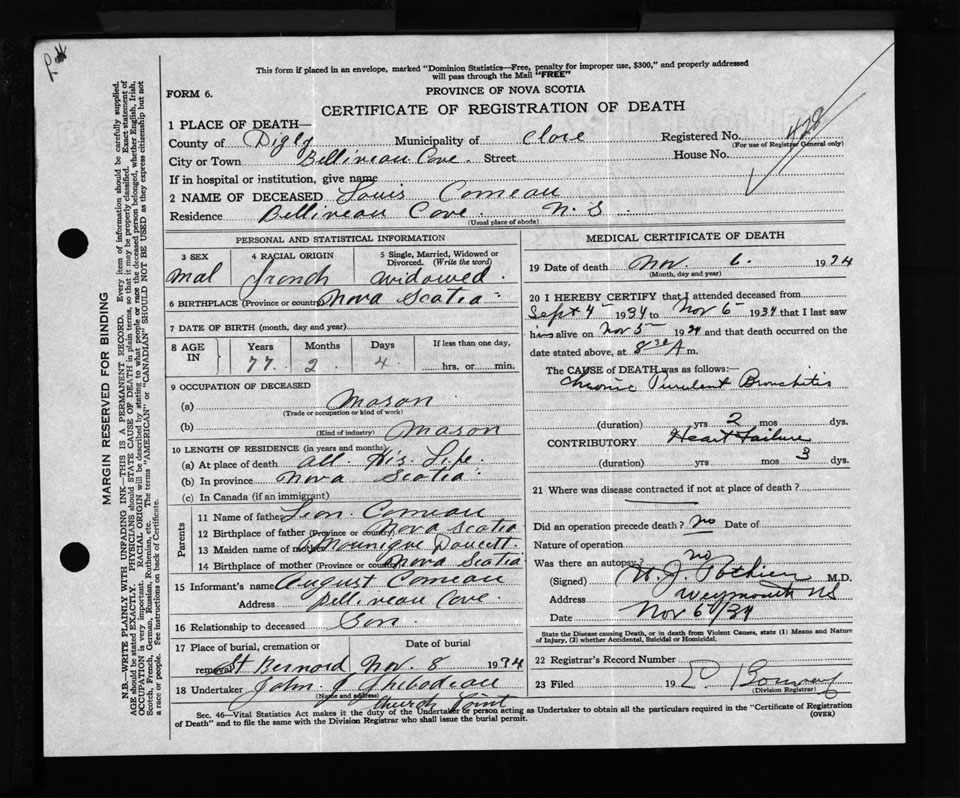 This form if placed in an envelope, marked "Dominion Statistics—Free, penalty for improper use, $300," and properly addressed
will pass through the Mail "FREE"
FORM 6.
PROVINCE OF NOVA SCOTIA
CERTIFICATE OF REGISTRATION OF DEATH
1 PLACE OF DEATH—
County of Digby Municipality of Clare Registered No. 428
(For use of Registrar General only)
City or Town Bellineau Cove. Street House No.
If in hospital or institution, give name
2 NAME OF DECEASED Louis Comeau
Residence Bellineau Cove. N. S.
(Usual place of abode)
PERSONAL AND STATISTICAL INFORMATION
3 SEX 4 RACIAL ORIGIN 5 Single, Married, Widowed or
Divorced. (Write the word)
Mal French widowed.
6 BIRTHPLACE (Province or country) Nova Scotia
7 DATE OF BIRTH (month, day and year)
8 AGE IN Years Months Days If less than one day,
77 2 4 hrs. or min.
9 OCCUPATION OF DECEASED
(a) Mason
(Trade or occupation or kind of work)
(b) Mason
(Kind of industry)
10 LENGTH OF RESIDENCE (in years and months)
(a) At place of death all His Life
(b) In province Nova Scotia
(c) In Canada (if an immigrant)
Parents
11 Name of father Leon Comeau
12 Birthplace of father (Province or country) Nova Scotia
13 Maiden name of mother Mounique Doucett.
14 Birthplace of mother (Province or country) Nova Scotia
15 Informant's name August Comeau
Address Bellineau Cove.
16 Relationship to deceased Son.
17 Place of burial, cremation or Date of burial
removal St Bernard Nov. 8 1934
18 Undertaker John J Thibodeau
(Name and address)
Church Point
MEDICAL CERTIFICATE OF DEATH
19 Date of death Nov. 6. 1934
(Month, day and year)
20 I HEREBY CERTIFY that I attended deceased from
Sept 4 1934 to Nov 6 1934 that I last saw
him alive on Nov 5 1934 and that death occurred on
date stated above, at 8 30 A m.
The CAUSE of DEATH was as follows:
Chronic Purulent Bronchitis
(duration) yrs 2 mos dys.
CONTRIBUTORY Heart Failure
(duration) yrs mos 3 dys.
21 Where was disease contracted if not at place of death?
Did an operation precede death? No Date of
Nature of operation
Was there an autopsy? no
(Signed) W. J. Pothier M.D.
Address Weymouth NS
Date Nov 6/34
State the Disease causing Death, or in death from Violent Causes, state (1) Means and Nature
of Injury, (2) whether Accidental, Suicidal or Homicidal.
22 Registrar's Record Number
23 Filed 19
(Division Registrar)
Sec. 46—Vital Statistics Act makes it the duty of the Undertaker or person acting as Undertaker to obtain all the particulars required in the "Certificate of Registration
of Death" and to file the same with the Division Registrar who shall issue the burial permit. (OVER)
MARGIN RESERVED FOR BINDING
N.B.—WRITE PLAINLY WITH UNFADING INK—THIS IS A PERMANENT RECORD. Every item of information should be carefully supplied.
AGE should be stated EXACTLY. PHYSICIANS should STATE CAUSE OF DEATH in plain terms, so that it may be properly classified. Exact statement of
OCCUPATION is very important. RACIAL ORIGIN will be described by stating to what people or race the deceased person belonged, whether English, Irish,
Scotch, French, German, Russian, Ruthenian, etc. The terms "AMERICAN" or "CANADIAN" SHOULD NOT BE USED as they express citizenship but not
a race or people. See instructions on back of Certificate.